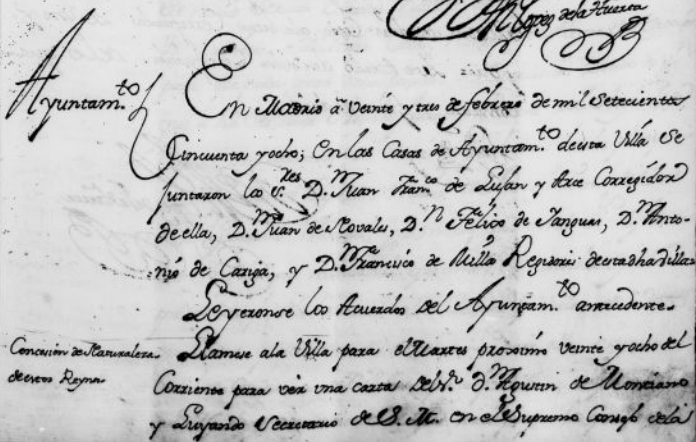 Lopez de la Huerta
Ayuntam.to
En Madrid a Veinte y tres de febrero de mil Setecientos
Cincuenta y ocho; En las Casas de Ayuntam.to de esta Villa Se
juntaron los S.res D.n Juan Fran.co de Luján y Arce Corregidor
de ella, D.n Juan de Novales, D.n Felix de Yanguas, D.n Anto-
nio de Cariga, y D.n Francisco de Milla Regidores de esta dha Villa
Leyeronse los Acuerdos del Ayuntam.to antecedente
Concesion de Naturaleza
de estos Reynos
Llamese a la Villa para el Martes proximo veinte y ocho del
Corriente para ver una carta del S.r d.n Agustin de Montiano
y Luyando Secretario de S. M. en el Supremo Consejo de la